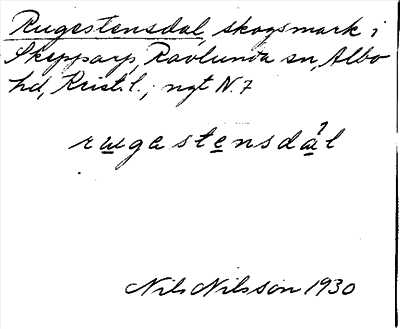 Rugestensdal, skogsmark i
Skepparp, Ravlunda sn, Albo
hd, Krist. l.; ngt N. 7
rugastensdál
Nils Nilsson 1930